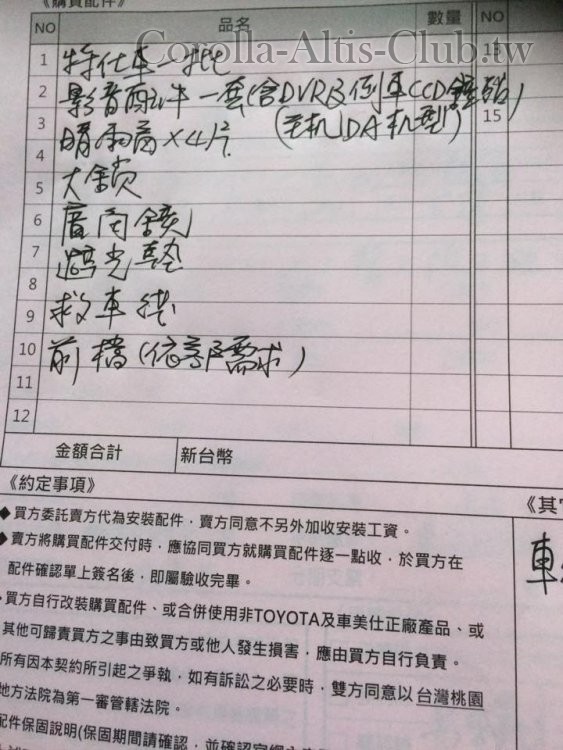 《購買配件》
NO 品名 數量 NO
Corolla-Altis-Club.tw
1 特仕車一批 13
2 影音配件一套(含DVR及倒車CCD鏡頭)
3 晴雨窗×4片 (主机DA机型) 15
4
5 大鎖
6 後鏡
7 避光墊
8
9 救車線
10 前檔(依客戶需求)
11
12
金額合計 新台幣
《約定事項》
《其
◆買方委託賣方代為安裝配件,賣方同意不另外加收安裝工資。
◆賣方將購買配件交付時,應協同買方就購買配件逐一點收,於買方在
配件確認單上簽名後,即屬驗收完畢。
買方自行改裝購買配件、或合併使用非TOYOTA及車美仕正廠產品、或
其他可歸責買方之事由致買方或他人發生損害,應由買方自行負責。
所有因本契約所引起之爭執,如有訴訟之必要時,雙方同意以台灣桃園
地方法院為第一審管轄法院。
配件保固說明(保固期間請確認,並確認
車